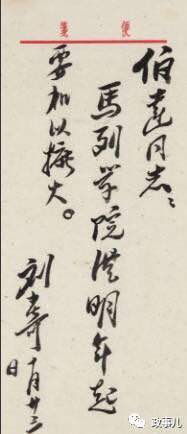 便箋
伯達同志:
馬列学院從明年起
要加以擴大。
刘少奇 十月廿三
日
政事儿